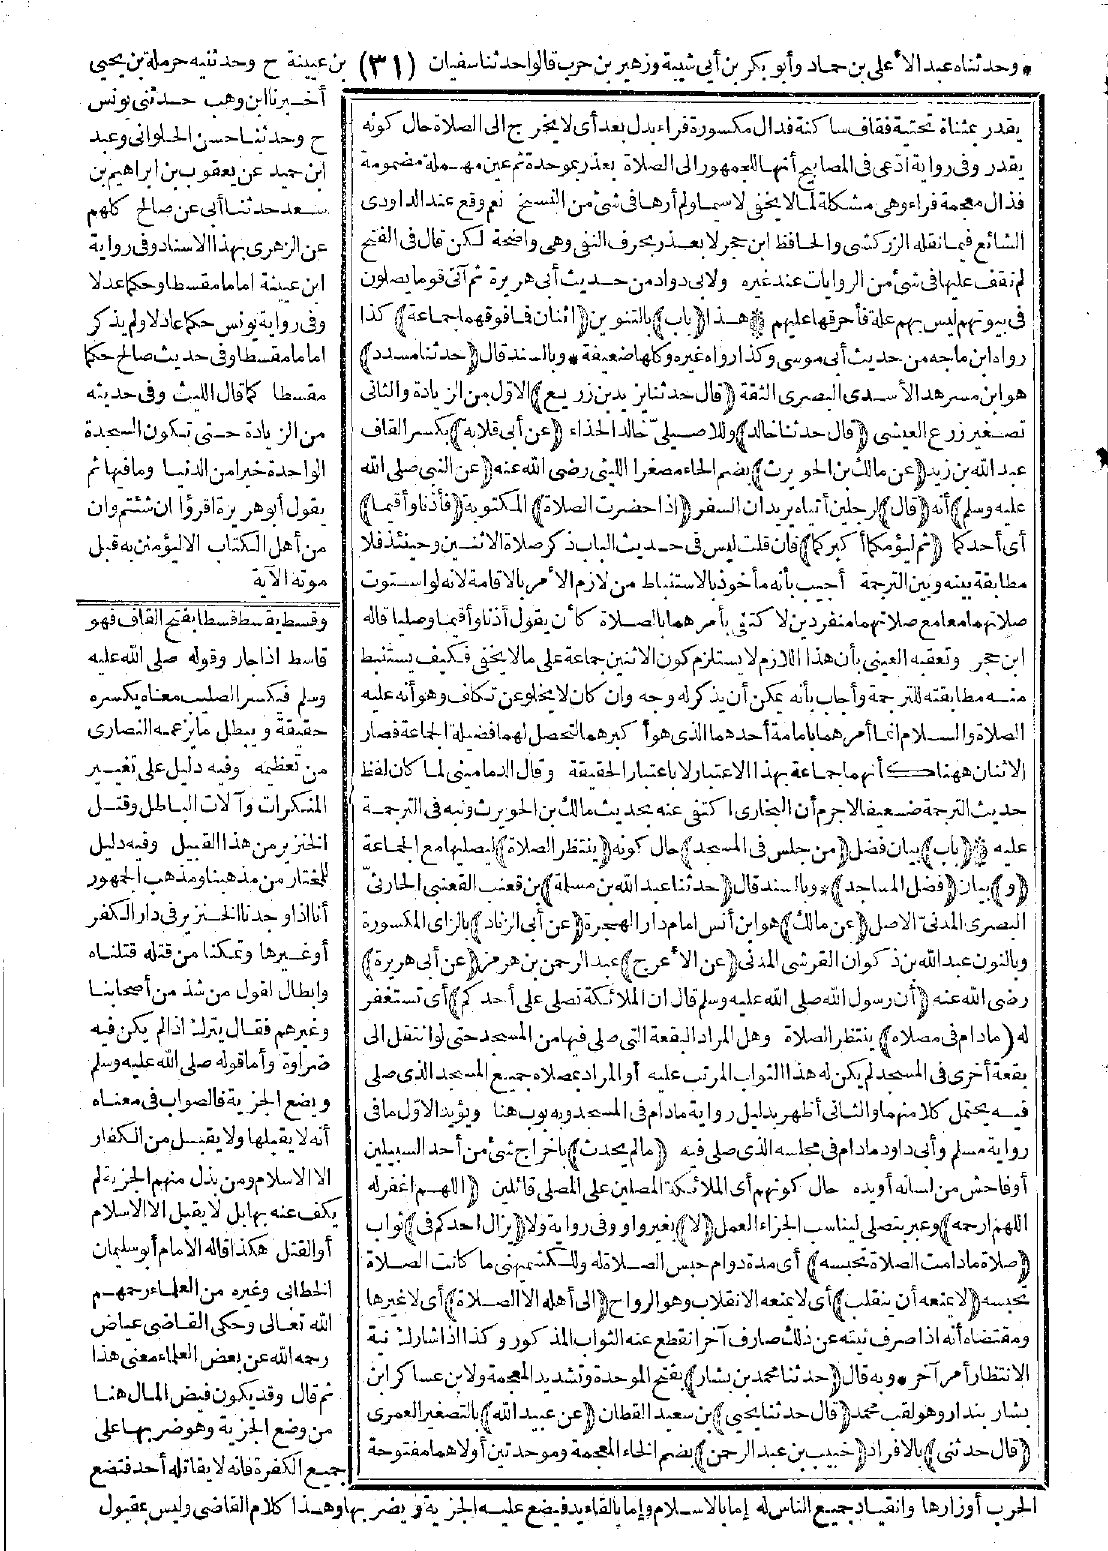 * وحدثناه عبد الأعلى بن حماد وأبو بكر بن أبي شيبة وزهير بن حرب قالوا حدثنا سفيان (٣١) بن عيينة ح وحدثنيه حرملة بن يحيى
يقدر بمثناة تحتية فقاف ساكنة فدال مكسورة فراء بدل بعد أى لا يخرج الى الصلاة حال كونه
يقدر وفى رواية ادّعى فى المصابيح أنها للجمهور الى الصلاة بعذر بموحدة ثم عين مهملة مضمومة
فذال معجمة فراء وهى مشكلة لما لا يخفى لا سيما ولم أرها فى شئ من النسخ نعم وقع عند الداودى
الشائع فيما نقله الزركشى والحافظ ابن حجر لا بعذر بحرف النفى وهى واضحة لكن قال فى الفتح
لم نقف عليها فى شئ من الروايات عند غيره ولابى دواد من حديث أبى هريرة ثم آتى قوما يصلون
فى بيوتهم ليس بهم علة فأحرقها عليهم * هذا (باب) بالتنوين (اثنان فما فوقهما جماعة) كذا
رواه ابن ماجه من حديث أبى موسى وكذا رواه غيره وكلها ضعيفة * وبالسند قال (حدثنا مسدد)
هو ابن مسرهد الأسدى البصرى الثقة (قال حدثنا يزيد بن زريع) الاول من الزيادة والثانى
تصغير زرع العيشى (قال حدثنا خالد) وللاصيلى خالد الحذاء (عن أبى قلابة) بكسر القاف
عبد الله بن زيد (عن مالك بن الحويرث) بضم الحاء مصغرا الليثى رضى الله عنه (عن النبى صلى الله
عليه وسلم) أنه (قال) لرجلين أتياه يريدان السفر (اذا حضرت الصلاة) المكتوبة (فأذنا وأقيما)
أى أحدكما (ثم ليؤمكما أكبركما) فان قلت ليس فى حديث الباب ذكر صلاة الاثنين وحينئذ فلا
مطابقة بينه وبين الترجمة أجيب بأنه مأخوذ بالاستنباط من لازم الأمر بالاقامة لانه لو استوت
صلاتهما معا مع صلاتهما منفردين لاكتفى بأمرهما بالصلاة كأن يقول أذنا وأقيما وصليا قاله
ابن حجر وتعقبه العينى بأن هذا اللازم لا يستلزم كون الاثنين جماعة على ما لا يخفى فكيف يستنبط
منه مطابقته للترجمة وأجاب بأنه يمكن أن يذكر له وجه وان كان لا يخلو عن تكاف وهو أنه عليه
الصلاة والسلام انما أمرهما بامامة أحدهما الذى هو أكبرهما لتحصل لهما فضيلة الجماعة فصار
الاثنان ههنا كأنهما جماعة بهذا الاعتبار لا باعتبار الحقيقة وقال الدمامينى لما كان لفظ
حديث الترجمة ضعيفا لا جرم أن البخارى اكتفى عنه بحديث مالك بن الحويرث ونبه فى الترجمة
عليه * (باب) بيان فضل (من جلس فى المسجد) حال كونه (ينتظر الصلاة) ليصليها مع الجماعة
(و) بيان (فضل المساجد) * وبالسند قال (حدثنا عبد الله بن مسلمة) بن قعنب القعنبى الحارثىّ
البصرى المدنىّ الاصل (عن مالك) هو ابن أنس امام دار الهجرة (عن أبى الزناد) بالزاى المكسورة
وبالنون عبد الله بن ذكوان القرشى المدنى (عن الأعرج) عبد الرحمن بن هرمز (عن أبى هريرة)
رضى الله عنه (أن رسول الله صلى الله عليه وسلم قال ان الملائكة تصلى على أحدكم) أى تستغفر
له (مادام فى مصلاه) ينتظر الصلاة وهل المراد البقعة التى صلى فيها من المسجد حتى لو انتقل الى
بقعة أخرى فى المسجد لم يكن له هذا الثواب المرتب عليه أو المراد بمصلاه جميع المسجد الذى صلى
فيه يحتمل كلا منهما والثانى أظهر بدليل رواية مادام فى المسجد وبه بوب هنا ويؤيد الاول ما فى
رواية مسلم وأبى داود مادام فى مجلسه الذى صلى فيه (مالم يحدث) باخراج شئ من أحد السبيلين
أو فاحش من لسانه أو يده حال كونهم أى الملائكة المصلين على المصلى قائلين (اللهم اغفر له
اللهم ارحمه) وعبر بتصلى ليناسب الجزاء العمل (لا) بغير واو وفى رواية ولا (يزال احدكم فى) ثواب
(صلاة مادامت الصلاة تحبسه) أى مدة دوام حبس الصلاة له وللكشميهنى ما كانت الصلاة
تحبسه (لا يمنعه أن ينقلب) أى لا يمنعه الانقلاب وهو الرواح (الى أهله الا الصلاة) أى لا غيرها
ومقتضاه أنه اذا صرف نيته عن ذلك صارف آخر انقطع عنه الثواب المذكور وكذا اذا شارك نية
الانتظار أمر آخر * وبه قال (حدثنا محمد بن بشار) بفتح الموحدة وتشديد المعجمة ولابن عساكر ابن
بشار بندار وهو لقب محمد (قال حدثنا يحيى) بن سعيد القطان (عن عبيد الله) بالتصغير العمرى
(قال حدثنى) بالافراد (خبيب بن عبد الرحمن) بضم الخاء المعجمة وموحدتين أولاهما مفتوحة
أخبرنا ابن وهب حدثنى يونس
ح وحدثنا حسن الحلوانى وعبد
ابن حميد عن يعقوب بن ابراهيم بن
سعد حدثنا أبى عن صالح كلهم
عن الزهرى بهذا الاسناد وفى رواية
ابن عيينة اماما مقسطا وحكما عدلا
وفى رواية يونس حكما عادلا ولم يذكر
اماما مقسطا وفى حديث صالح حكما
مقسطا كما قال الليث وفى حديثه
من الزيادة حتى تكون السجدة
الواحدة خيرا من الدنيا وما فيها ثم
يقول أبو هريرة اقرؤا ان شئتم وان
من أهل الكتاب الا ليؤمنن به قبل
موته الآية
وقسط يقسط قسطا بفتح القاف فهو
قاسط اذا جار وقوله صلى الله عليه
وسلم فيكسر الصليب معناه يكسره
حقيقة ويبطل ما يزعمه النصارى
من تعظيمه وفيه دليل على تغيير
المنكرات وآلات الباطل وقتل
الخنزير من هذا القبيل وفيه دليل
للمختار من مذهبنا ومذهب الجمهور
أنا اذا وجدنا الخنزير فى دار الكفر
أو غيرها وتمكنا من قتله قتلناه
وابطال لقول من شذ من أصحابنا
وغيرهم فقال يترك اذا لم يكن فيه
ضراوة وأما قوله صلى الله عليه وسلم
ويضع الجزية فالصواب فى معناه
أنه لا يقبلها ولا يقبل من الكفار
الا الاسلام ومن بذل منهم الجزية لم
يكف عنه بها بل لا يقبل الا الاسلام
أو القتل هكذا قاله الامام أبو سليمان
الخطابى وغيره من العلماء رحمهم
الله تعالى وحكى القاضى عياض
رحمه الله عن بعض العلماء معنى هذا
ثم قال وقد يكون فيض المال هنا
من وضع الجزية وهو ضربها على
جميع الكفرة فانه لا يقاتله أحد فتضع
الحرب أوزارها وانقياد جميع الناس له إما بالاسلام وإما بالقاء يد فيضع عليه الجزية ويضربها وهذا كلام القاضى وليس بمقبول